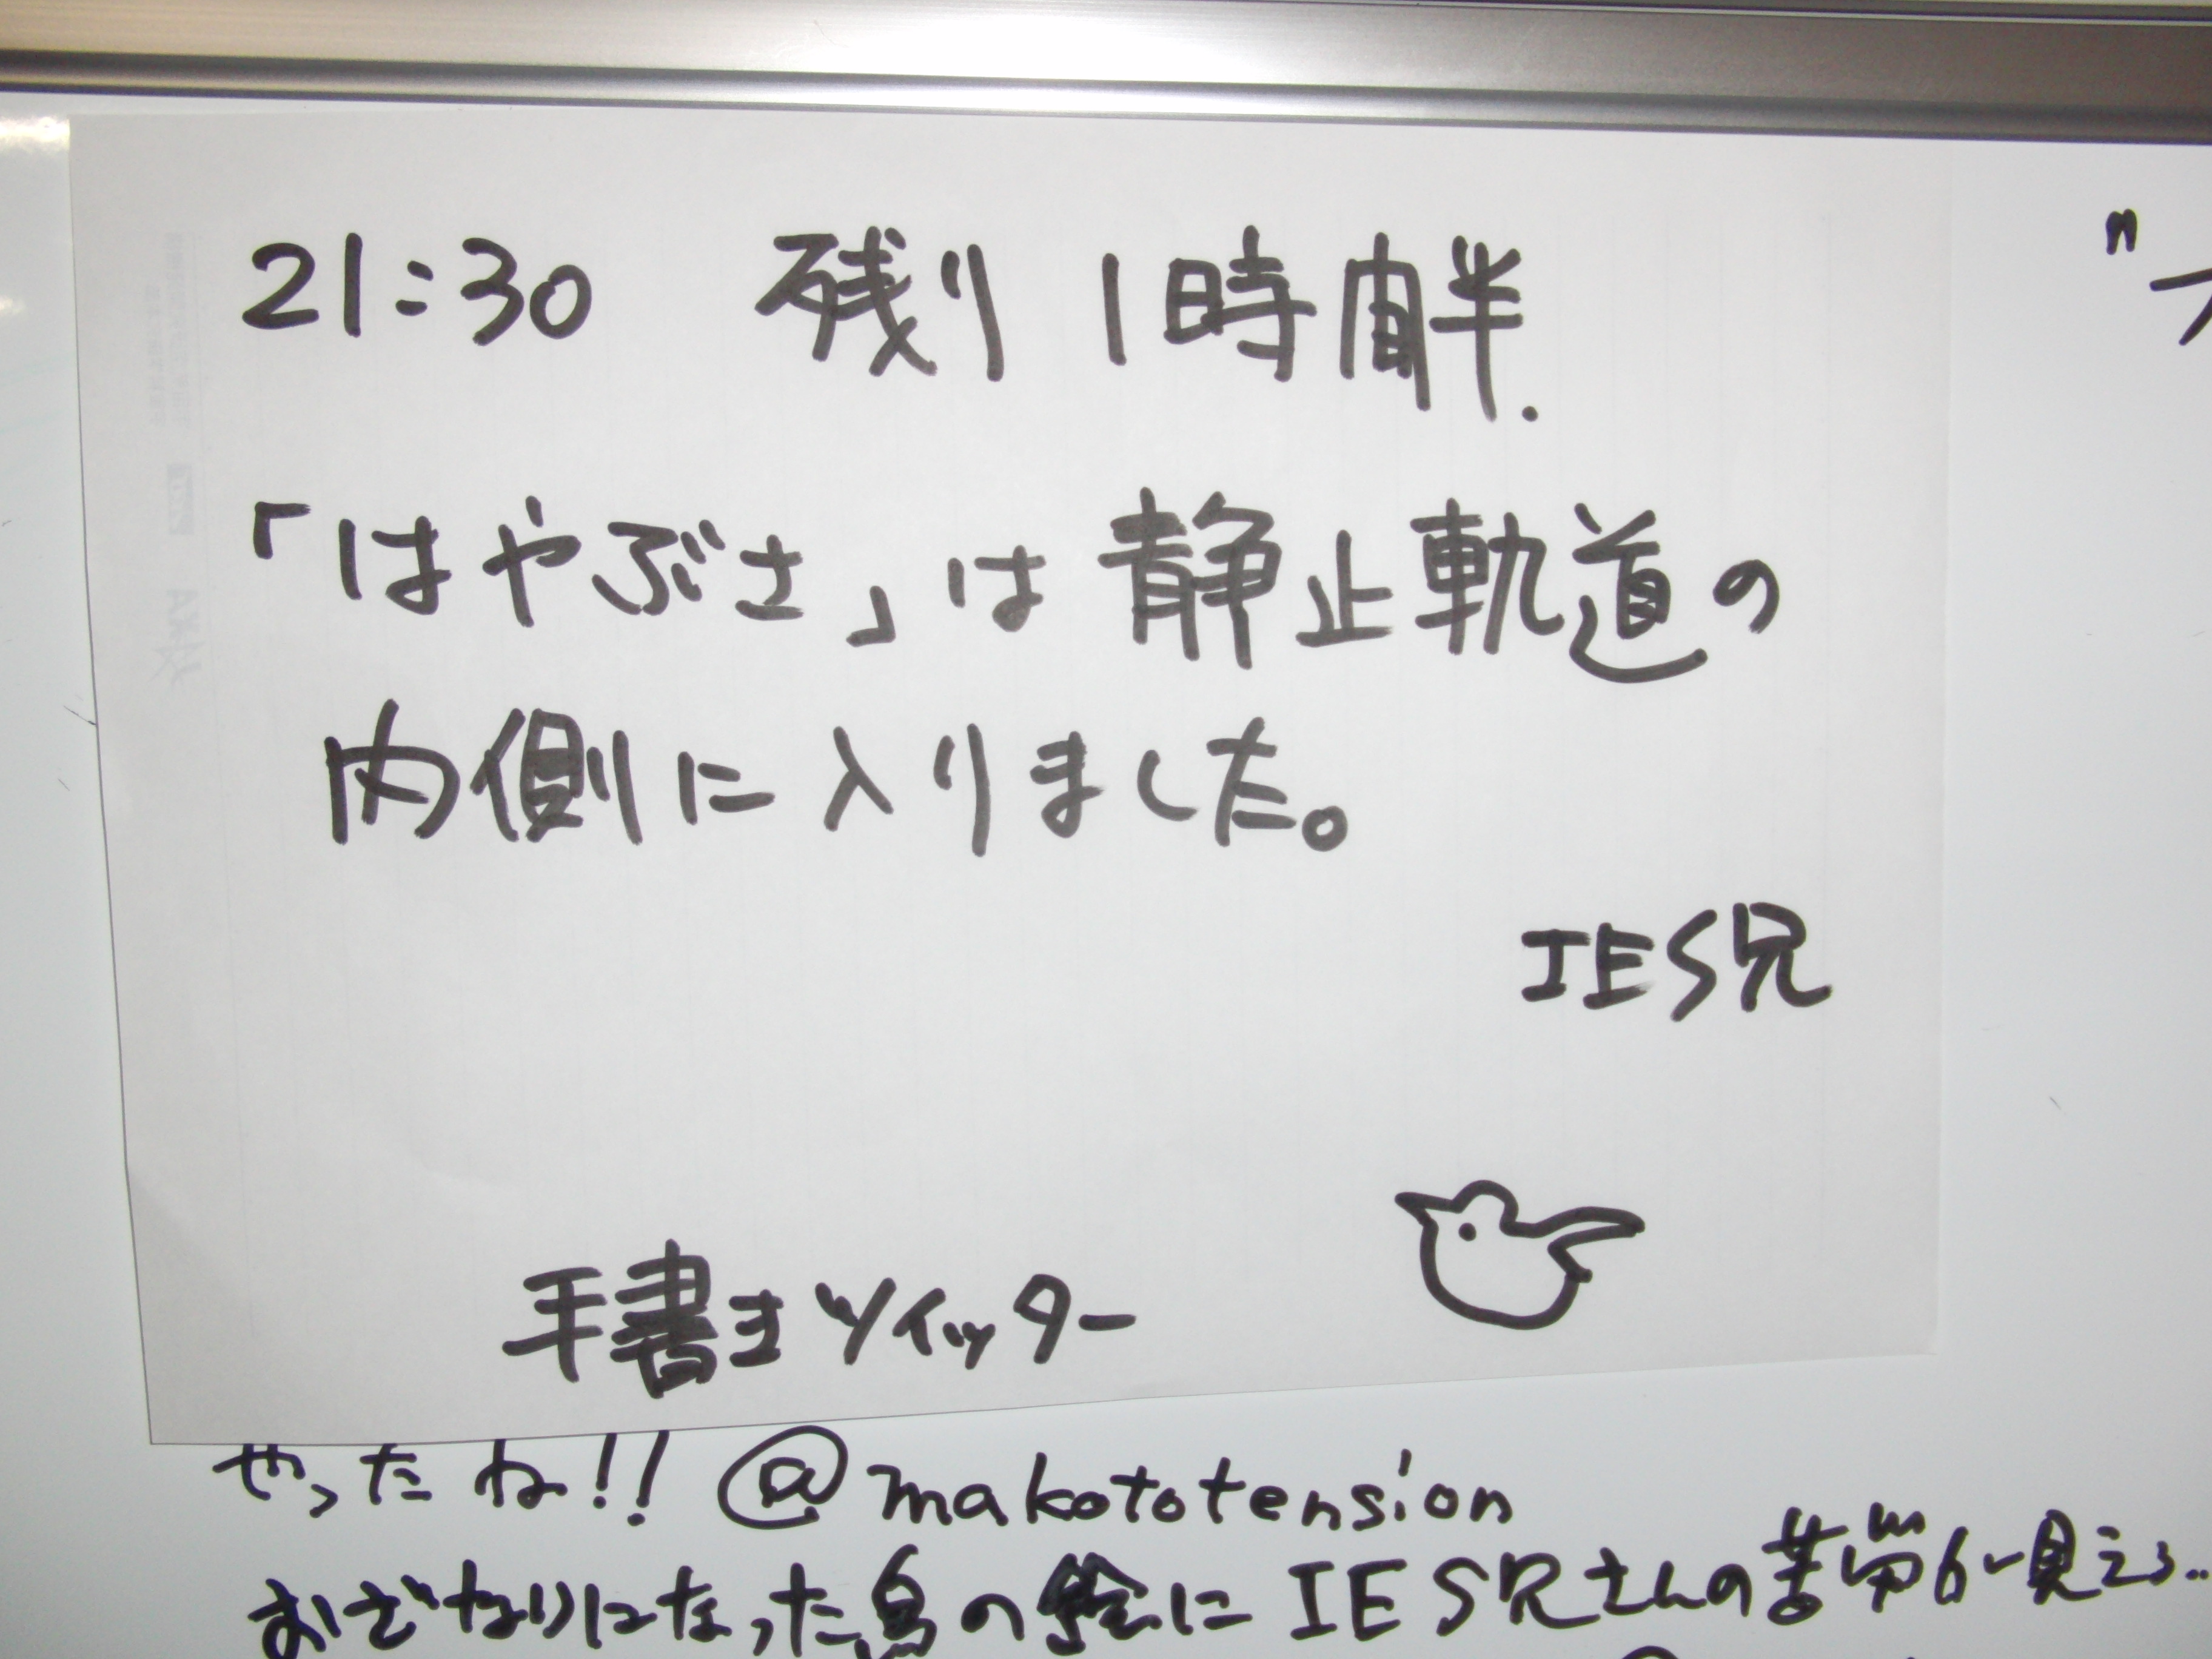 21:30 残り1時間半.
「はやぶさ」は静止軌道の
内側に入りました。
IES兄
手書きツイッター
やったね!! @makototension
おざなりになった鳥の絵にIES兄さんの苦労が見える..